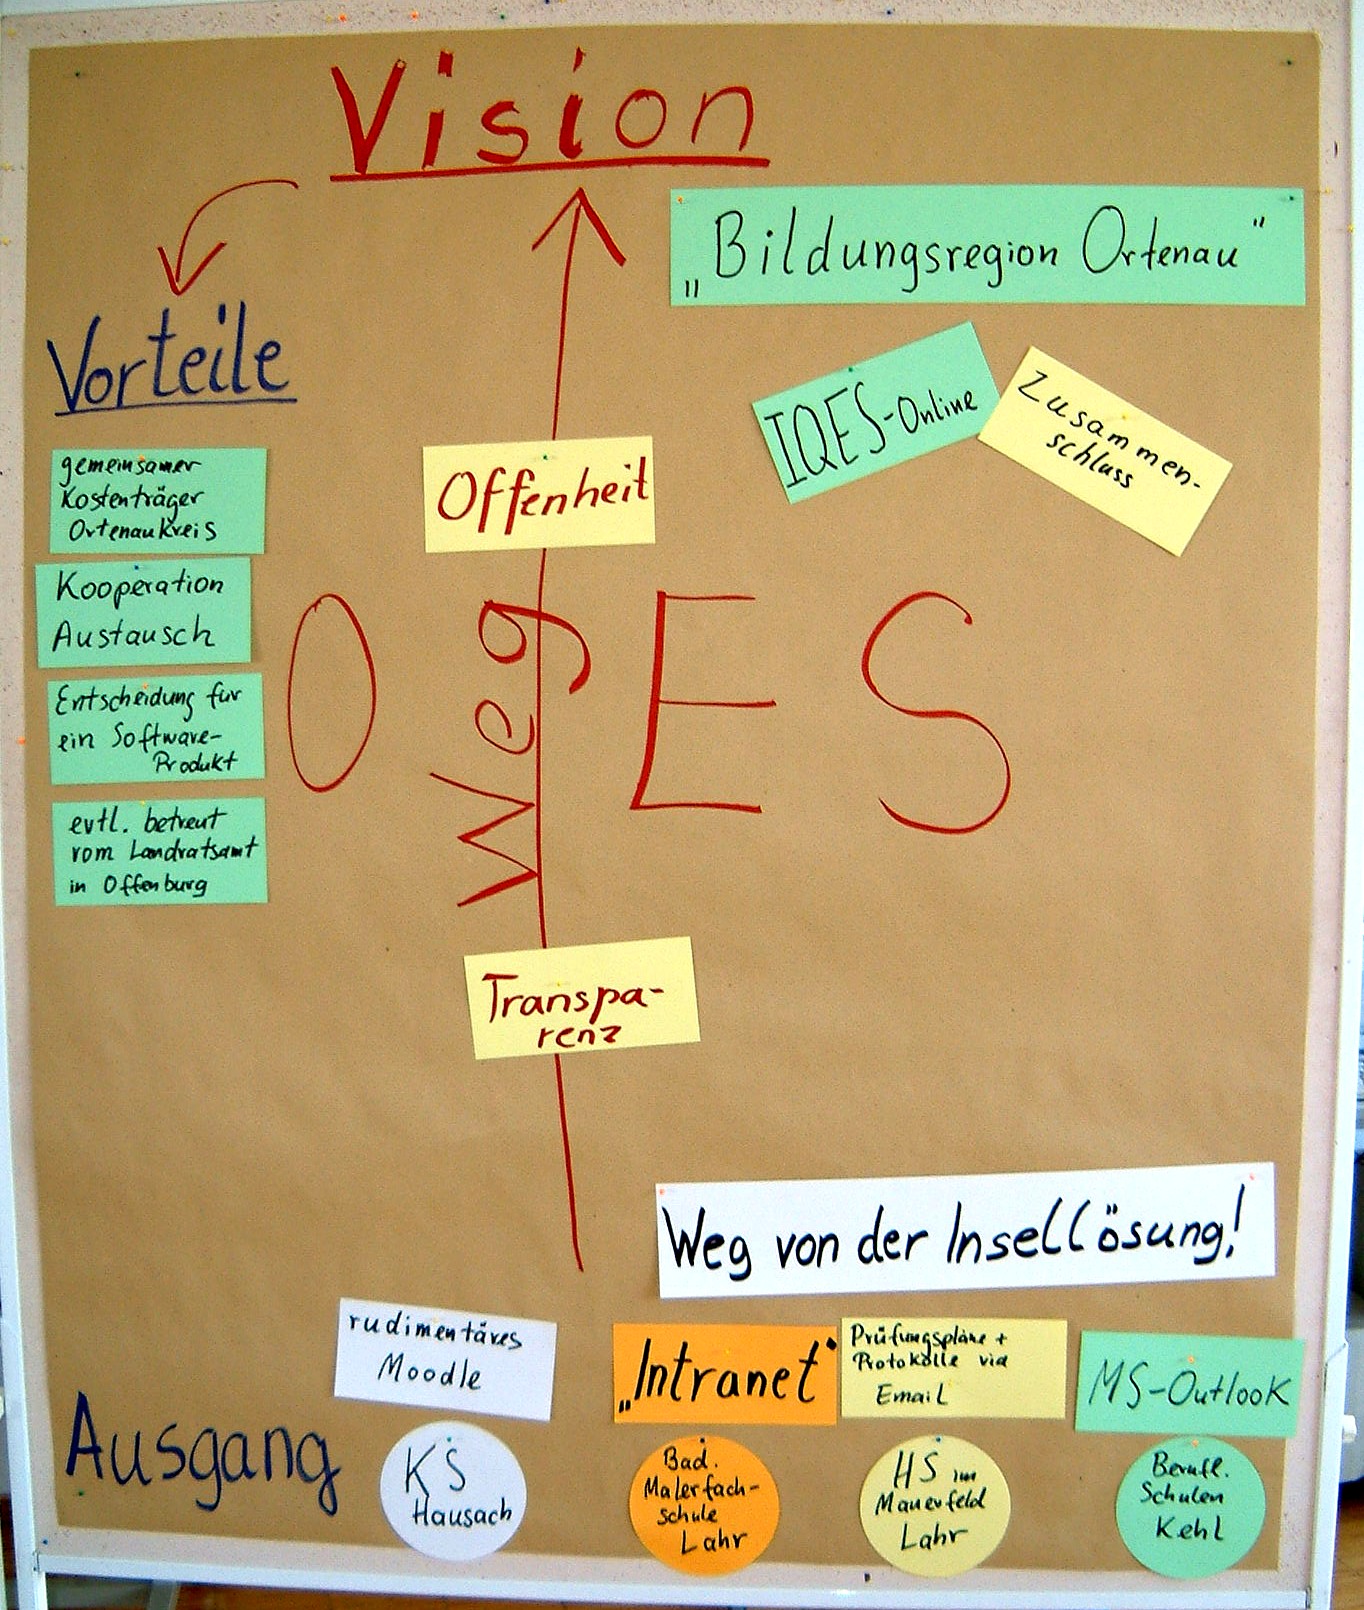 Vision
„Bildungsregion Ortenau"
Vorteile
IQES-Online
Zusammen-
schluss
gemeinsamer
Kostenträger
Ortenaukreis
Offenheit
Kooperation
Austausch
O
Weg
E S
Entscheidung für
ein Software-
Produkt
evtl. betreut
vom Landratsamt
in Offenburg
Transpa-
renz
Weg von der Insellösung!
rudimentäres
Moodle
„Intranet"
Prüfungspläne +
Protokolle via
Email
MS-Outlook
Ausgang
KS
Hausach
Bad.
Malerfach-
schule
Lahr
HS im
Mauerfeld
Lahr
Berufl.
Schulen
Kehl